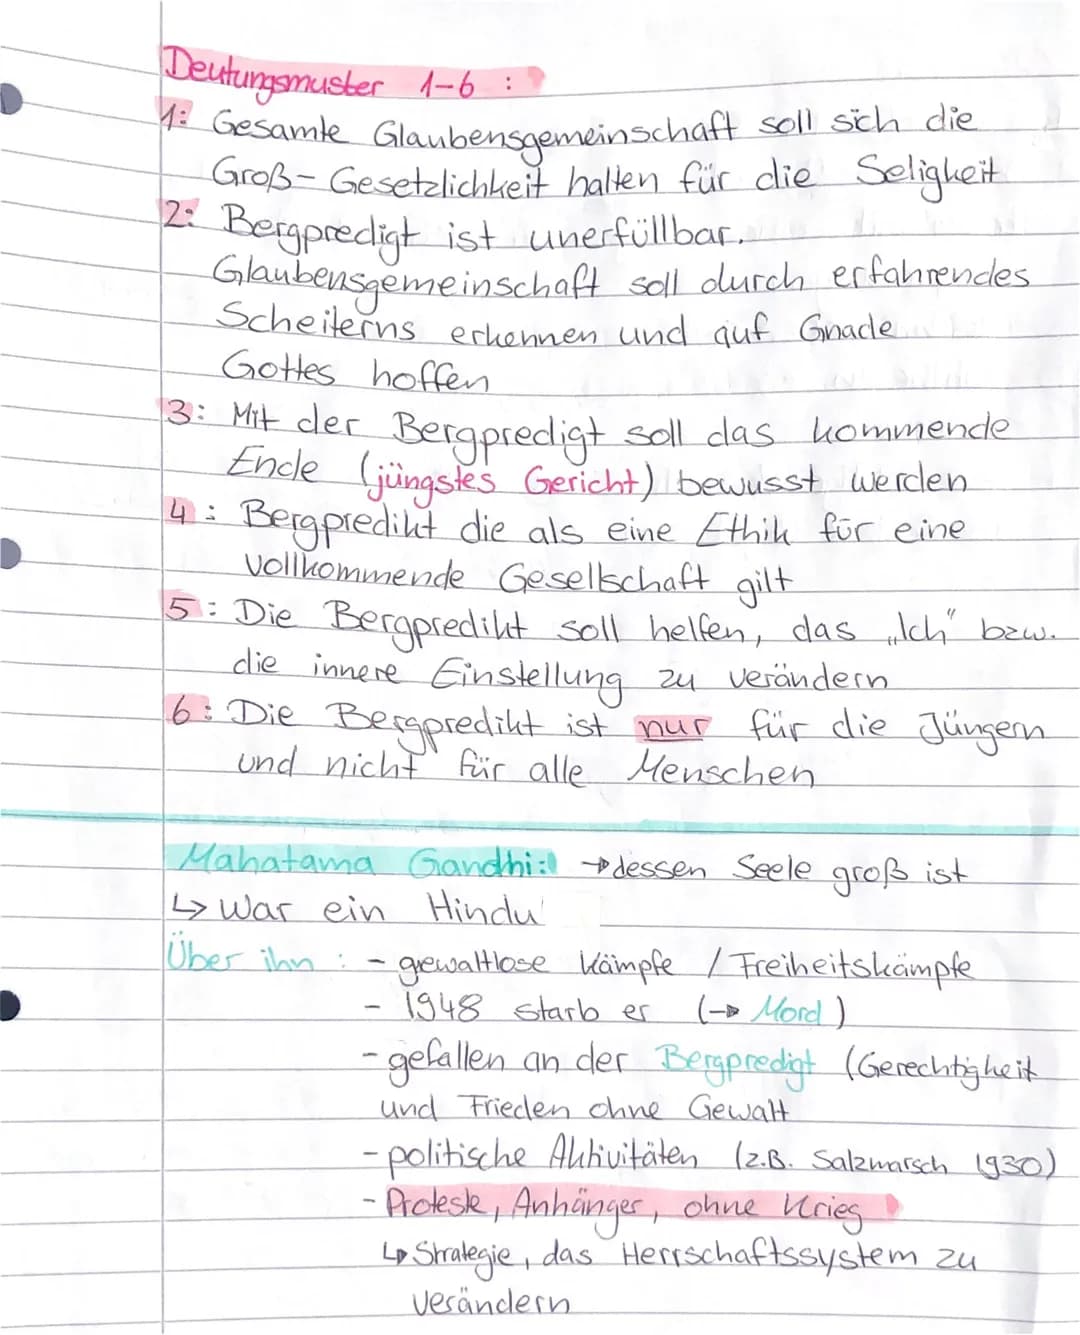 Deutungsmuster 1-6 :
1: Gesamte Glaubensgemeinschaft soll sich die
Groß- Gesetzlichkeit halten für die Seligkeit
2: Bergpredigt ist unerfüllbar.
Glaubensgemeinschaft soll durch erfahrendes
Scheiterns erkennen und auf Gnade
Gottes hoffen
3: Mit der Bergpredigt soll das kommende
Ende (jüngstes Gericht) bewusst werden
4: Bergpredikt die als eine Ethik für eine
vollkommende Gesellschaft gilt
5: Die Bergpredikt soll helfen, das „Ich" bzw.
die innere Einstellung zu verändern
6: Die Bergpredikt ist nur für die Jüngern
und nicht für alle Menschen
Mahatama Gandhi: → dessen Seele groß ist
↳ War ein Hindu
Über ihn : - gewaltlose Kämpfe / Freiheitskämpfe
- 1948 starb er (→ Mord)
- gefallen an der Bergpredigt (Gerechtigkeit
und Frieden ohne Gewalt
- politische Aktivitäten (z.B. Salzmarsch 1930)
- Proteste, Anhänger, ohne Krieg
↳ Strategie, das Herrschaftssystem zu
verändern